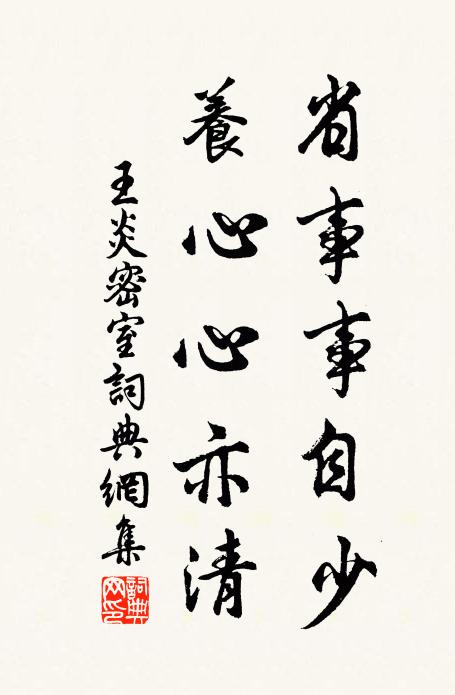 省事事自少
養心心亦清
王炎密室詞典網集
詞典網印